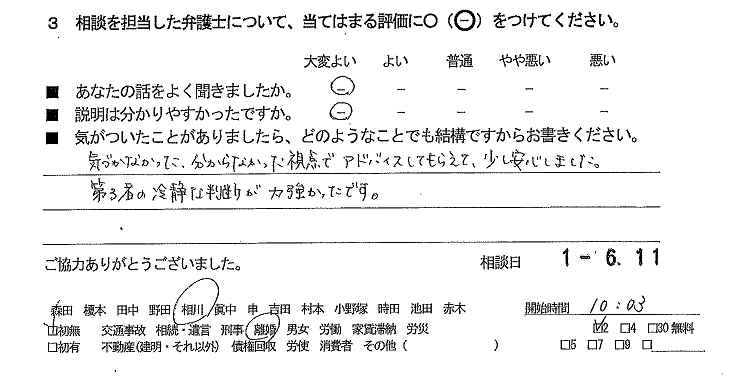 3 相談を担当した弁護士について、当てはまる評価に○(㊀)をつけてください。
大変よい よい 普通 やや悪い 悪い
■ あなたの話をよく聞きましたか。 － － － － －
■ 説明は分かりやすかったですか。 － － － － －
■ 気がついたことがありましたら、どのようなことでも結構ですからお書きください。
気づかなかった、分からなかった視点でアドバイスしてもらえて、少し安心しました。
第3者の冷静な判断が力強かったです。
ご協力ありがとうございました。 相談日 1-6.11
森田 榎本 田中 野田 相川 眞中 申 吉田 村本 小野塚 時田 池田 赤木 開始時間 10:03
□初無 交通事故 相続・遺言 刑事 離婚 男女 労働 家賃滞納 労災 ☑2 □4 □30 無料
□初有 不動産(建明・それ以外) 債権回収 労使 消費者 その他( ) □5 □7 □9 □